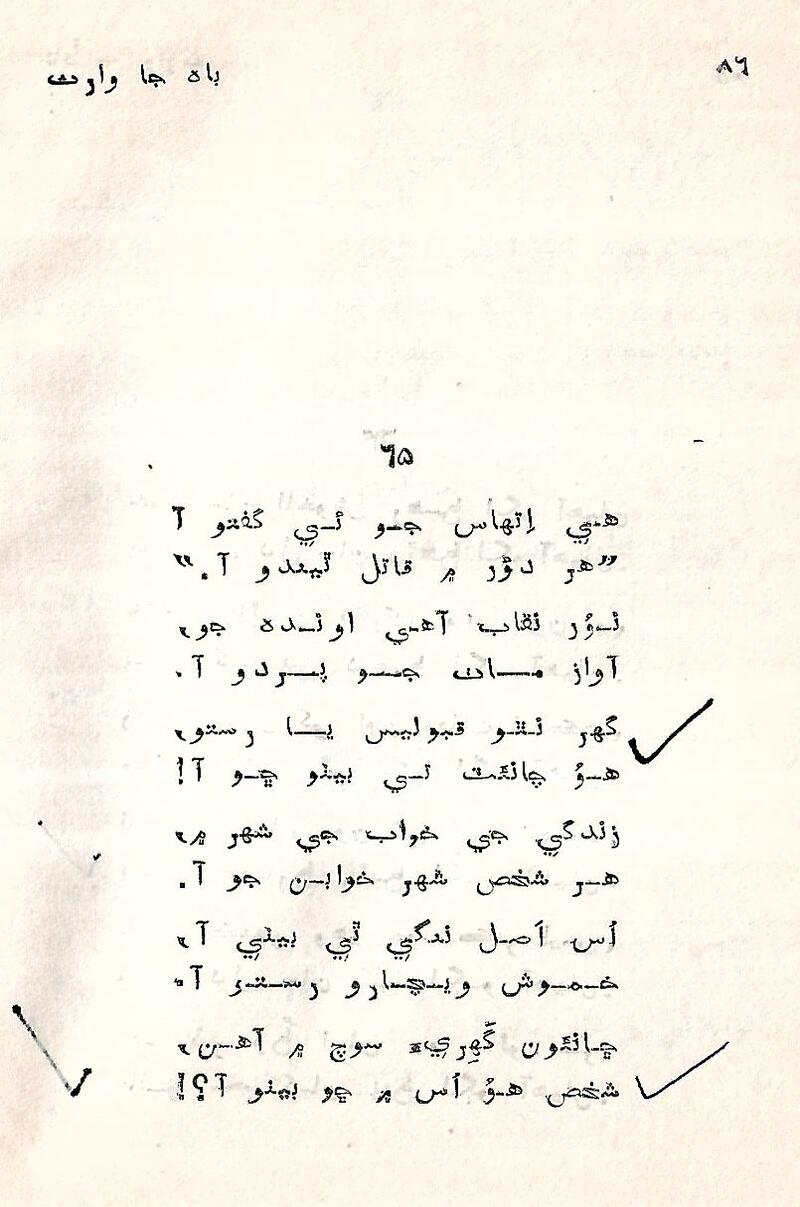 ۸۶
باہ جا وارث
۶۵
هيءَ اِتهاس جو ئي گفتو آ
”هر دؤر ۾ قاتل ٿيندو آ.“
نوُر نقاب آهي اونده جو،
آواز مات جو پردو آ.
گهر نٿو قبوليس يا رستو،
هوُ چائنٺ تي بيٺو ڇو آ!
زندگي جي خواب جي شهر ۾،
هر شخص شهر خوابن جو آ.
اُس اَصل ننگي ٿي بيٺي آ،
خموش ويچارو رستو آ.
ڇانئون گهري سوچ ۾ آهن،
شخص هوُ اُس ۾ ڇو بيٺو آ؟!